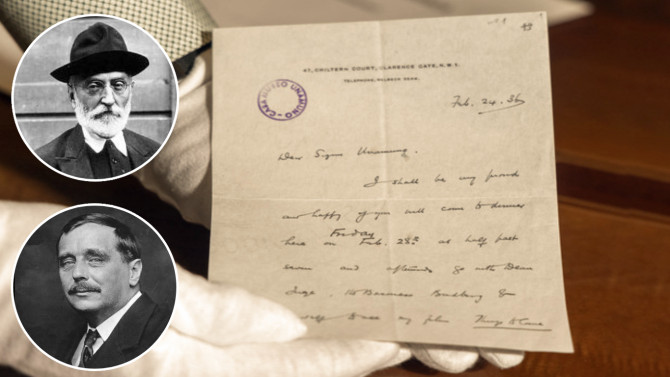 49
47, CHILTERN COURT, CLARENCE GATE, N.W.1.
TELEPHONE, WELBECK
CASA MUSEO UNAMUNO
Feb. 24. 36
Dear Signor Unamuno.
I shall be very proud
and happy if you will come to dinner
here on Friday Feb. 28th at half past
seven and afterwards go with Dean
Inge, to Baroness Budberg &
to see my film Things to Come